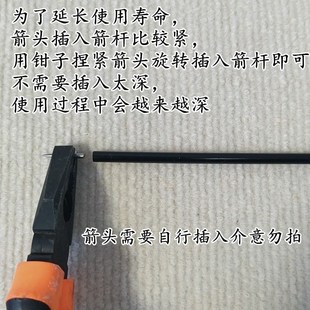 为了延长使用寿命，
箭头插入箭杆比较紧，
用钳子捏紧箭头旋转插入箭杆即可
不需要插入太深，
使用过程中会越来越深
箭头需要自行插入介意勿拍